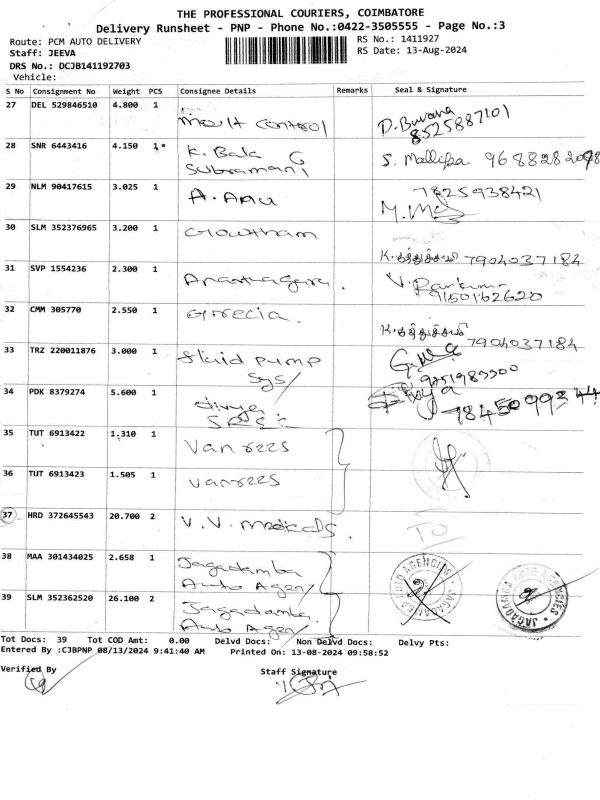 THE PROFESSIONAL COURIERS, COIMBATORE
Delivery Runsheet - PNP - Phone No.:0422-3505555 - Page No.:3
Route: PCM AUTO DELIVERY RS No.: 1411927
Staff: JEEVA RS Date: 13-Aug-2024
DRS No.: DCJB141192703
Vehicle:
S No Consignment No Weight PCS Consignee Details Remarks Seal & Signature
27 DEL 529846510 4.800 1 control D. Buvana
8525887101
28 SNR 6443416 4.150 1 K. Bala G S.
Subramani
29 NLM 90417615 3.025 1 A. Anu 7825938421
30 SLM 352376965 3.200 1 Gowtham 7904037184
31 SVP 1554236 2.300 1 V.
9150162620
32 CMM 305770 2.550 1 Grecia. 7904037184
33 TRZ 220011876 3.000 1 fluid pump
sys/
34 PDK 8379274 5.600 1 divya Divya
35 TUT 6913422 1.310 1 vanrees
36 TUT 6913423 1.505 1 vanrees
37 HRD 372645543 20.700 2 V. V. medicals. TO
38 MAA 301434025 2.658 1 Jagadamba
Auto Agen/
39 SLM 352362520 26.100 2 Jagadamba
Auto Agen/
JAGADAMBA AUTO AGENCIES
JAGADAMBA AUTO AGENCIES
Tot Docs: 39 Tot COD Amt: 0.00 Delvd Docs: Non Delvd Docs: Delvy Pts:
Entered By :CJBPNP 08/13/2024 9:41:40 AM Printed On: 13-08-2024 09:58:52
Verified By Staff Signature